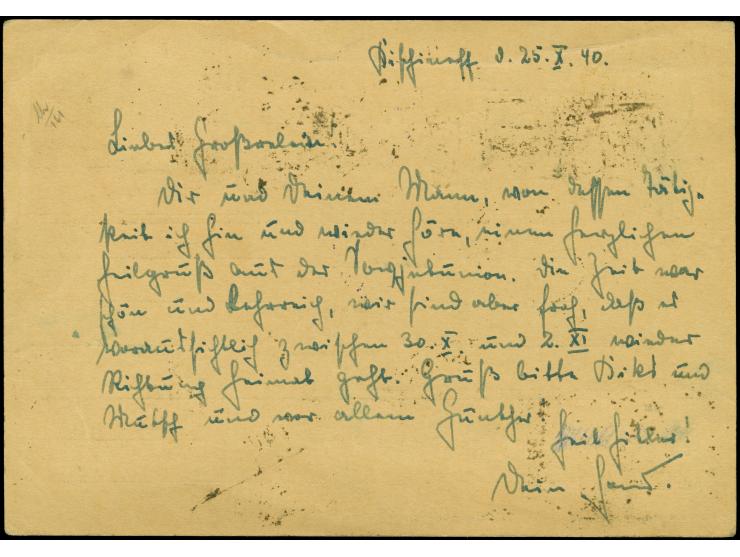 Kischineff d. 25. X. 40.
Liebes
Dir und Deinem Mann, von dessen Tätig-
keit ich hin und wieder höre, einen herzlichen
Heilgruß aus der Sowjetunion. Die Zeit war
schön und lehrreich, wir sind aber froh, daß es
voraussichtlich zwischen 30. X und 2. XI wieder
Richtung Heimat geht. Gruß bitte und
Mutsch und vor allem Günther
Heil Hitler!
Dein Hans.